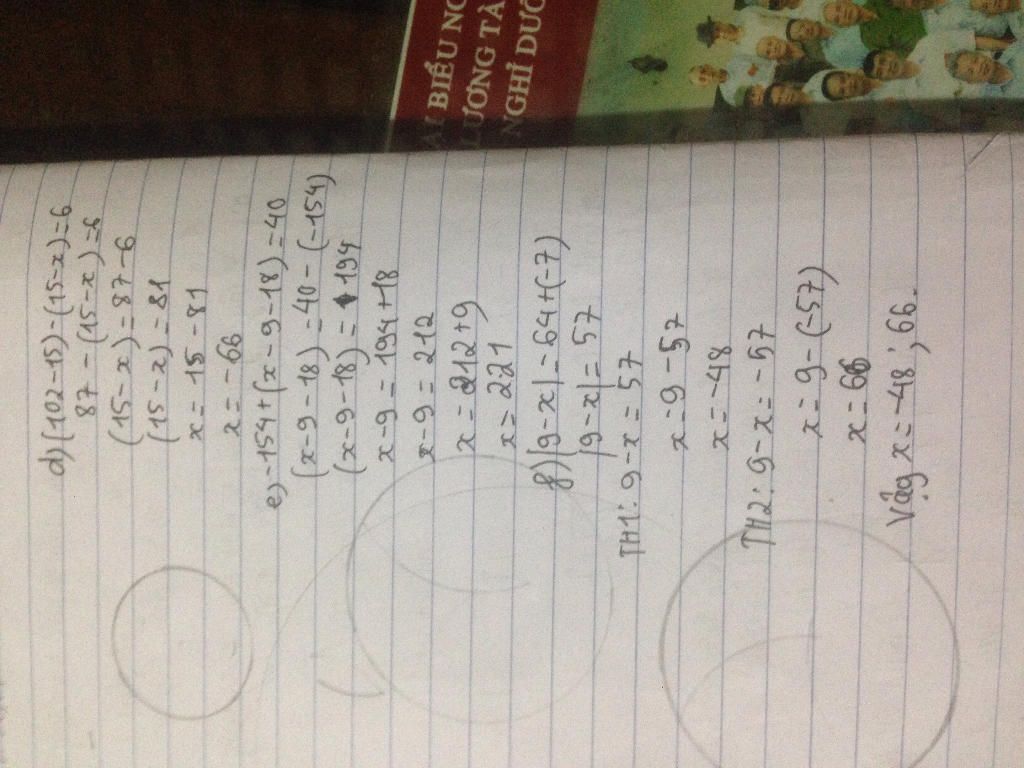 AI BIỂU NG
LƯƠNG TÀ
NGHỈ DƯỠ
d) (102-15)-(15-x)=6
87-(15-x)=6
(15-x)=87-6
(15-x)=81
x=15-81
x=-66
e) -154+(x-9-18)=40
(x-9-18)=40-(-154)
(x-9-18)=194
x-9=194+18
x-9=212
x=212+9
x=221
f) |9-x|=64+(-7)
|9-x|=57
TH1: 9-x=57
x=9-57
x=-48
TH2: 9-x=-57
x=9-(-57)
x=66
Vậy x=-48; 66.